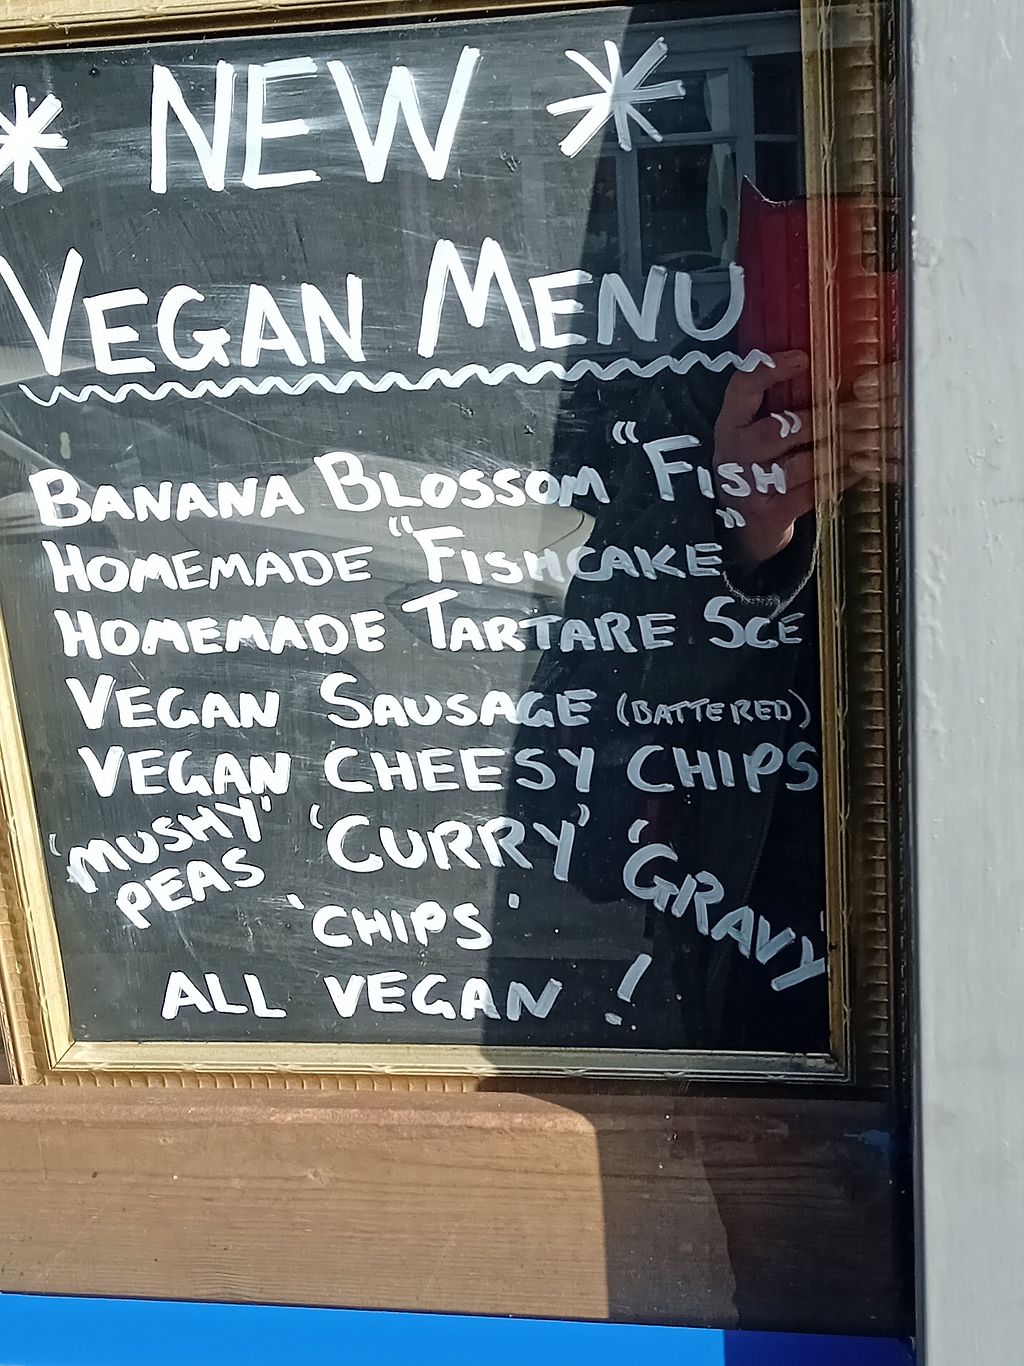 * NEW *
VEGAN MENU
BANANA BLOSSOM "FISH"
HOMEMADE "FISHCAKE"
HOMEMADE TARTARE SCE
VEGAN SAUSAGE (BATTERED)
VEGAN CHEESY CHIPS
'MUSHY' PEAS 'CURRY' 'GRAVY'
'CHIPS'
ALL VEGAN !